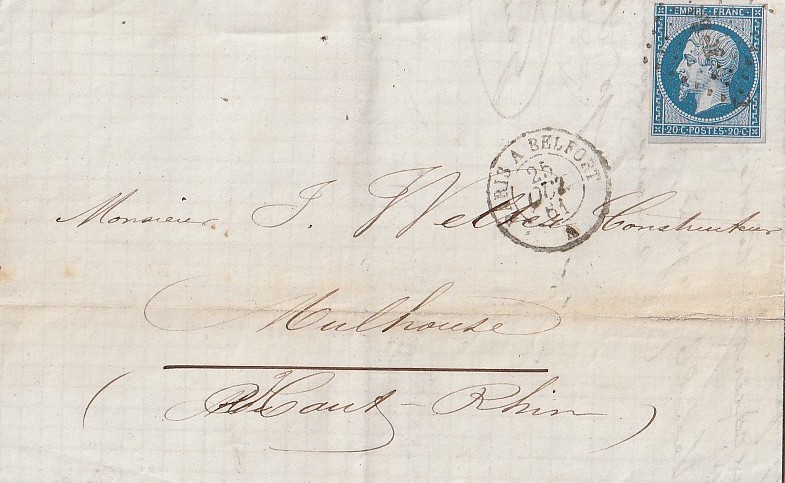 EMPIRE FRANC
20·C·POSTES·20·C·
PARIS A BELFORT
25
OCT
61
Monsieur J. Welter Constructeur
Mulhouse
(Haut-Rhin)